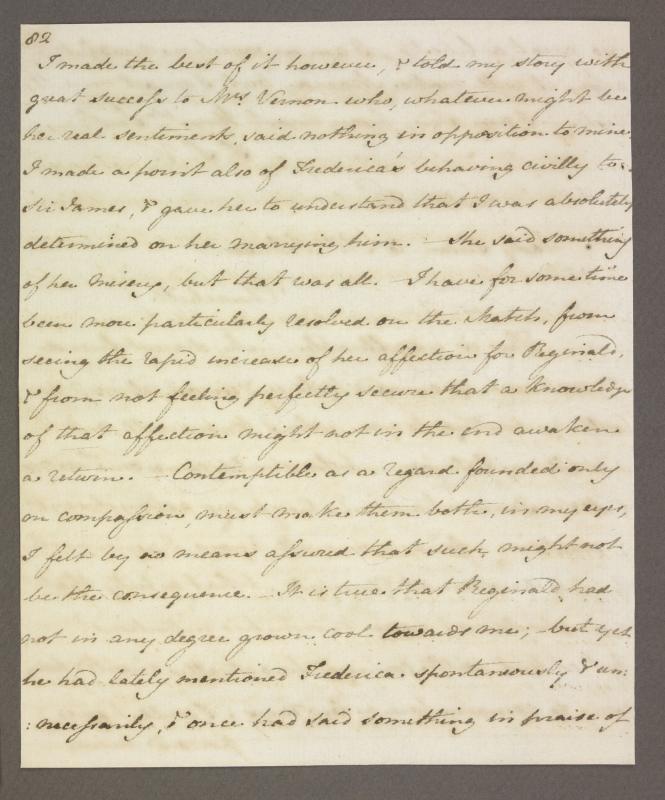 82
I made the best of it however, & told my story with
great success to Mrs Vernon who, whatever might be
her real sentiments, said nothing in opposition to mine.
I made a point also of Frederica's behaving civilly to
Sir James, & gave her to understand that I was absolutely
determined on her marrying him. – She said something
of her Misery, but that was all. – I have for sometime
been more particularly resolved on the Match, from
seeing the rapid increase of her affection for Reginald,
& from not feeling perfectly secure that a Knowledge
of that affection might not in the end awaken
a return. – Contemptible as a regard founded only
on compassion, must make them both, in my eyes,
I felt by no means assured that such might not
be the consequence. – It is true that Reginald had
not in any degree grown cool towards me; – but yet
he had lately mentioned Frederica spontaneously & un:
:necessarily, & once had said something in praise of